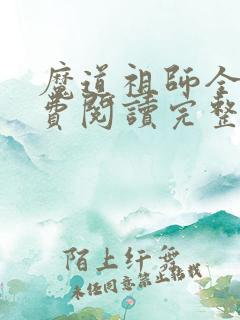 魔道祖師全
費閱讀完整
陌上纤舞
未经同意禁止转载